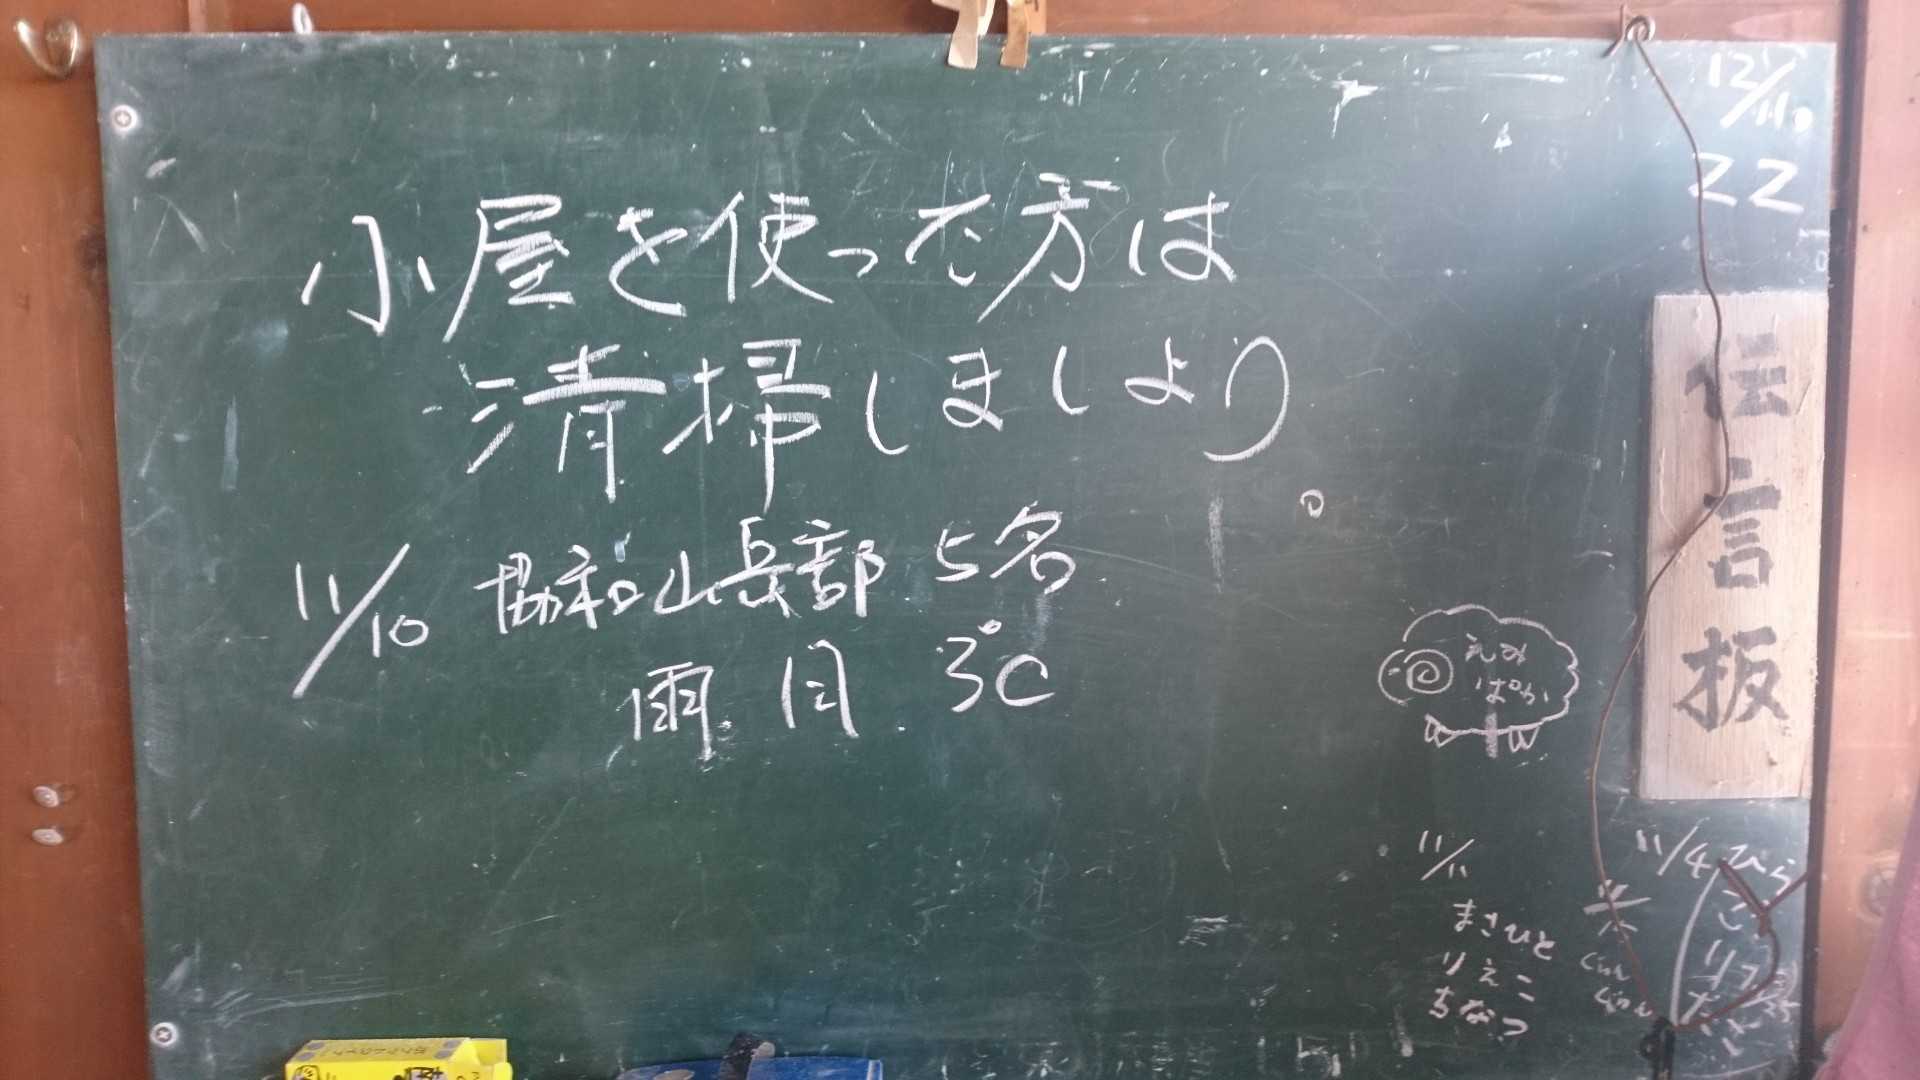 小屋を使った方は
清掃しましょう。
11/10 協和山岳部 5名
雨 月 3℃
伝言板
えみ
ぱか
11/11
まさひと
りえこ
ちなつ
11/4